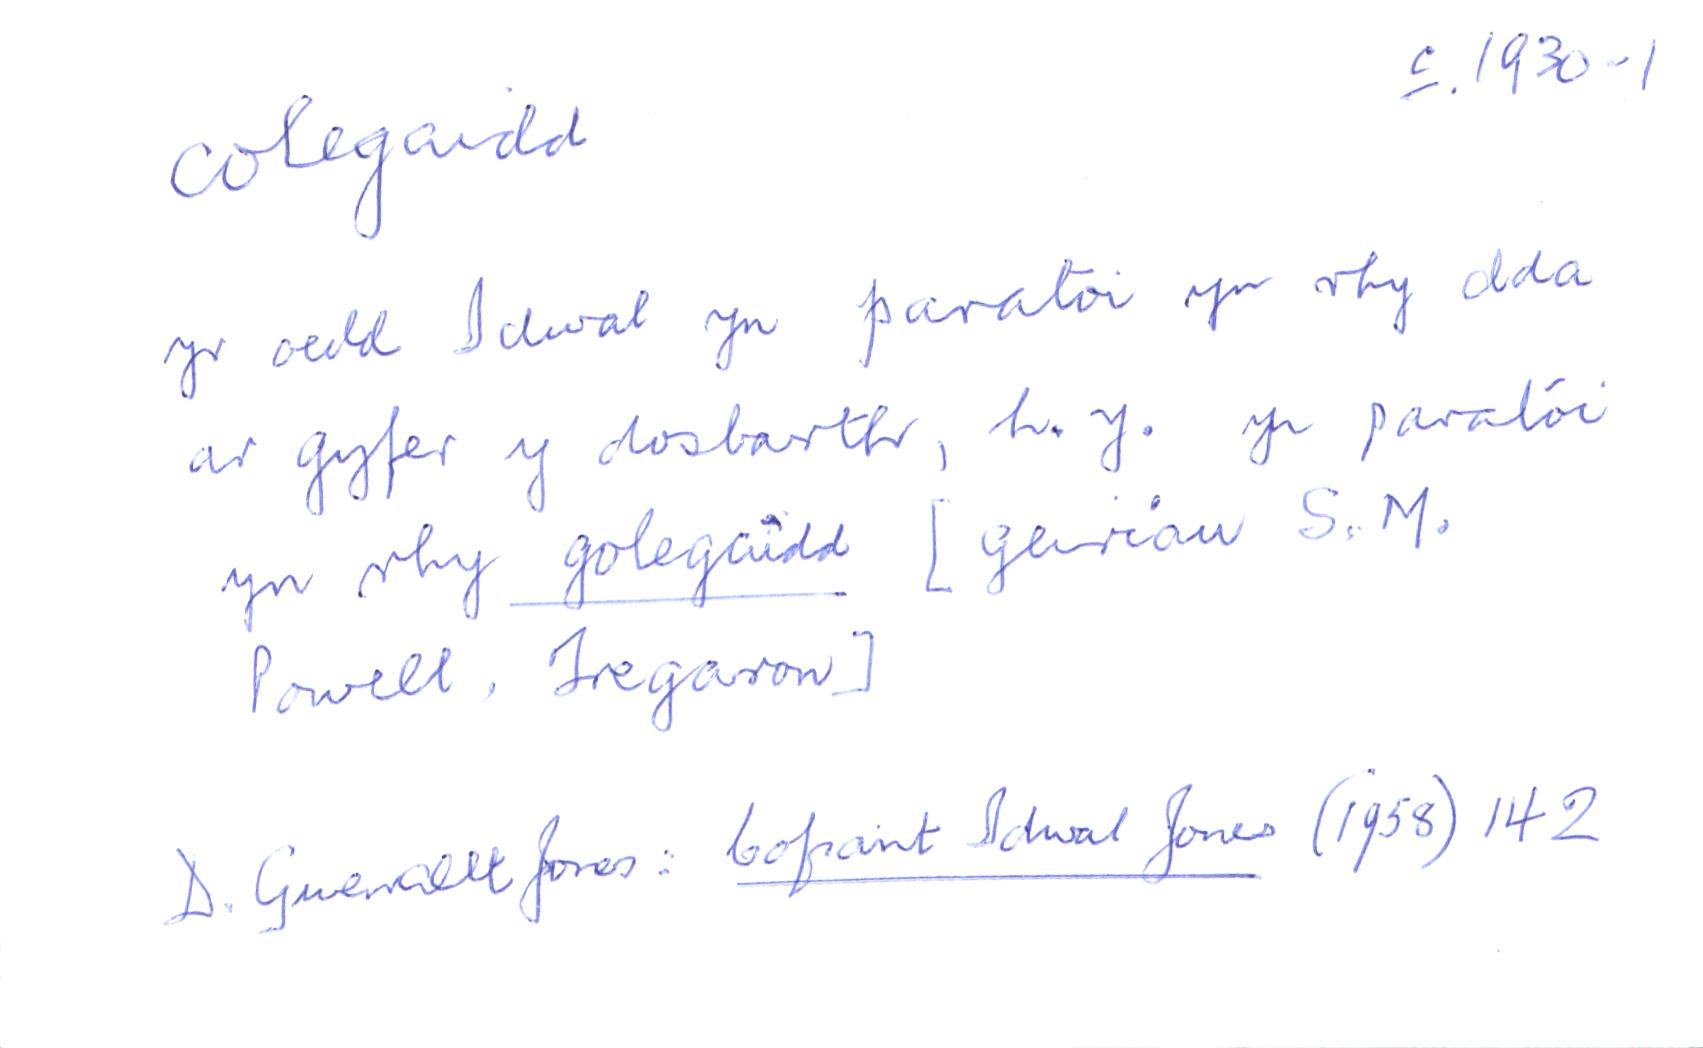 c. 1930-1
colegaidd
yr oedd Idwal yn paratoi yn rhy dda
ar gyfer y dosbarth, h.y. yn paratôi
yn rhy golegaidd [geiriau S.M.
Powell, Tregaron]
D. Gwenallt Jones: Cofiant Idwal Jones (1958) 142